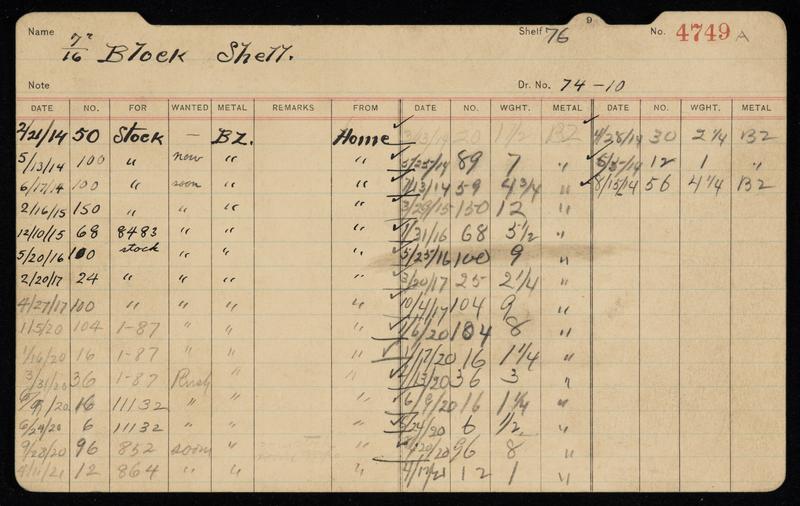 9
Name 7/16" Block Shell. Shelf 76 No. 4749 A
Note Dr. No. 74-10
DATE NO. FOR WANTED METAL REMARKS FROM DATE NO. WGHT. METAL DATE NO. WGHT. METAL
2/21/14 50 Stock — BZ. Home 3/13/14 20 1 1/2 BZ 4/28/14 30 2 1/4 BZ
5/13/14 100 " now " " 5/25/14 89 7 " 12 1 "
6/17/14 100 " soon " " 7/13/14 59 4 3/4 " 8/15/14 56 4 1/4 BZ
2/16/15 150 " " " 3/29/15 150 12 "
12/10/15 68 8483 " " " 1/31/16 68 5 1/2 "
5/20/16 100 stock " " " 5/25/16 100 9 "
2/20/17 24 " " " " 3/20/17 25 2 1/4 "
4/27/17 100 " " " " 10/4/17 104 9 "
1/5/20 104 1-87 " " " 1/6/20 104 8 "
1/16/20 16 1-87 " " " 1/17/20 16 1 1/4 "
3/31/20 36 1-87 Rush " " 4/13/20 36 3 "
6/9/20 16 11132 " " " 6/9/20 16 1 1/4 "
6/24/20 6 11132 " " " 6/24/20 6 1/2 "
9/28/20 96 852 soon " " 96 8 "
4/11/21 12 864 " " " 4/17/21 12 1 "